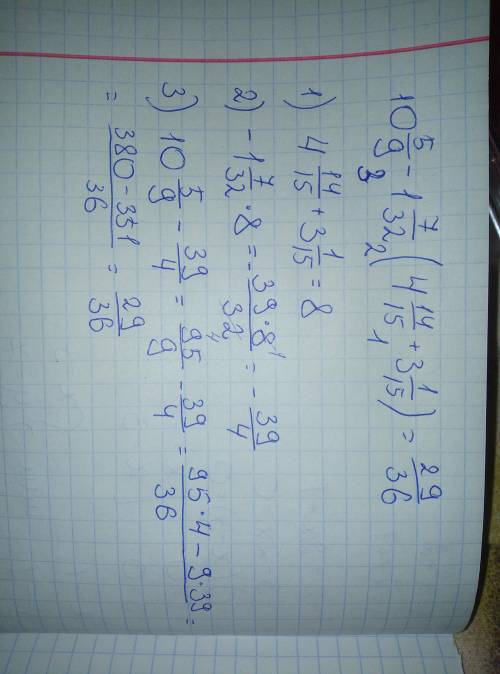 10 5/9 - 1 7/32 (4 14/15 + 3 1/15) = 29/36
3 2 1
1) 4 14/15 + 3 1/15 = 8
2) - 1 7/32 · 8 = - 39·8¹/32₄ = - 39/4
3) 10 5/9 - 39/4 = 95/9 - 39/4 = 95·4 - 9·39/36 =
= 380 - 351/36 = 29/36